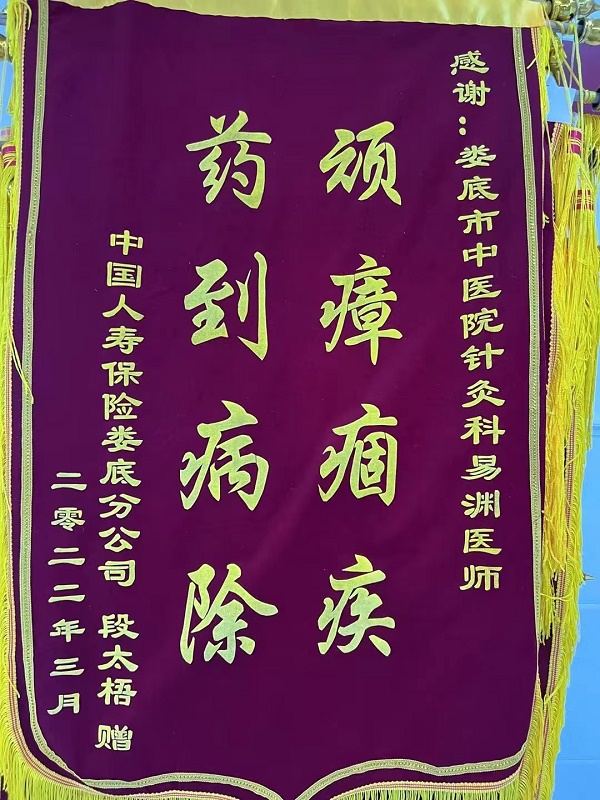 感谢：娄底市中医院针灸科易渊医师
顽瘴痼疾
药到病除
中国人寿保险娄底分公司 段太梧 赠
二零二二年三月